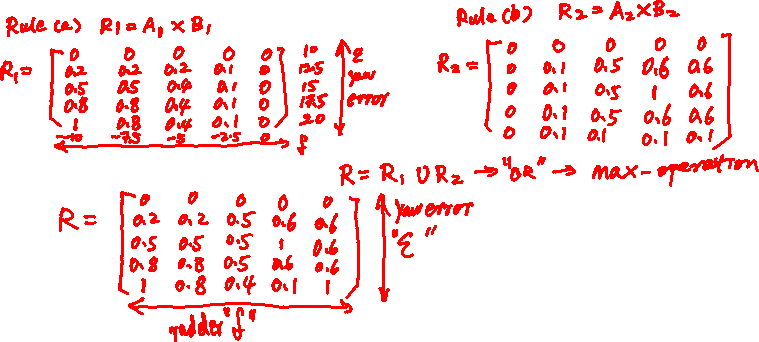 Rule (a) R₁ = A₁ × B₁
R₁ =
0 0 0 0 0 10
0.2 0.2 0.2 0.1 0 12.5
0.5 0.5 0.4 0.1 0 15
0.8 0.8 0.4 0.1 0 17.5
1 0.8 0.4 0.1 0 20
-10 -7.5 -5 -2.5 0 f
ε
yaw
error
Rule (b) R₂ = A₂ × B₂
R₂ =
0 0 0 0 0
0 0.1 0.5 0.6 0.6
0 0.1 0.5 1 0.6
0 0.1 0.5 0.6 0.6
0 0.1 0.1 0.1 0.1
R = R₁ ∪ R₂ → "OR" → max-operation
R =
0 0 0 0 0
0.2 0.2 0.5 0.6 0.6
0.5 0.5 0.5 1 0.6
0.8 0.8 0.5 0.6 0.6
1 0.8 0.4 0.1 1
yaw error
"ε"
rudder "f"